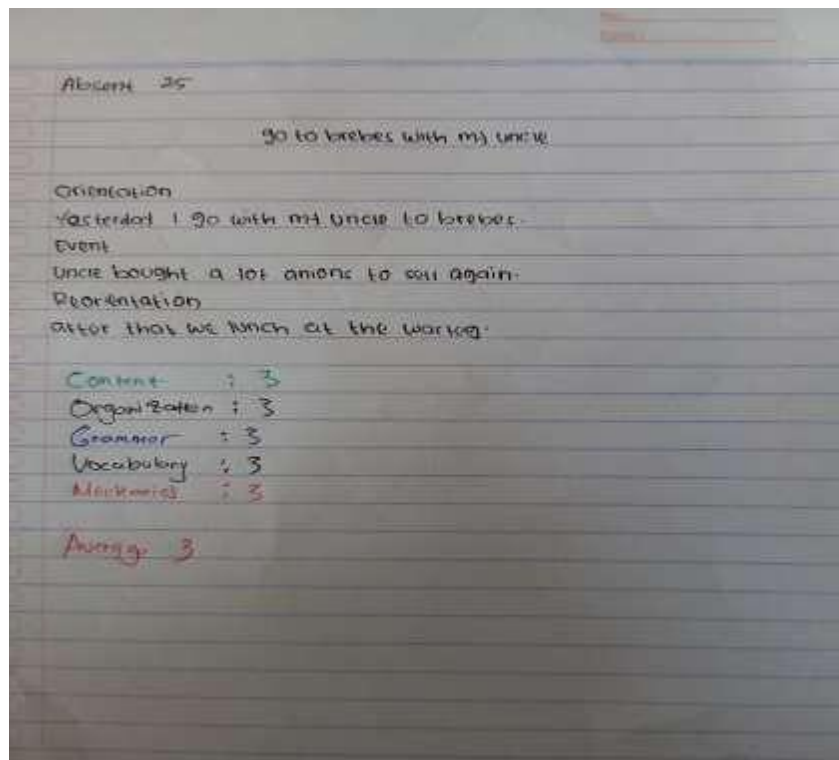 Absent 25
go to brebes with my uncle
Orientation
Yesterday I go with my uncle to brebes.
Event
Uncle bought a lot anions to sell again.
Reorientation
after that we lunch at the warteg.
Content : 3
Organization : 3
Grammar : 3
Vocabulary : 3
Mechanics : 3
Average 3